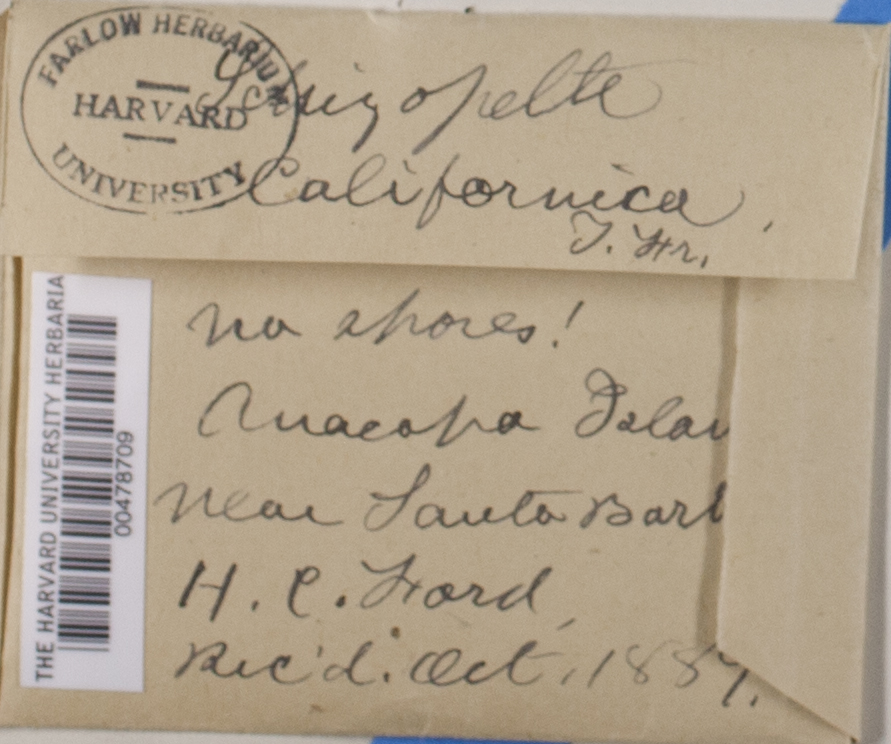 FARLOW HERBARIUM
HARVARD
UNIVERSITY
Schizopelte
Californica,
T. Fr.
no spores!
Anacapa Islan
near Santa Barb
H. C. Ford,
Rec'd. Oct. 1887.
THE HARVARD UNIVERSITY HERBARIA
00478709